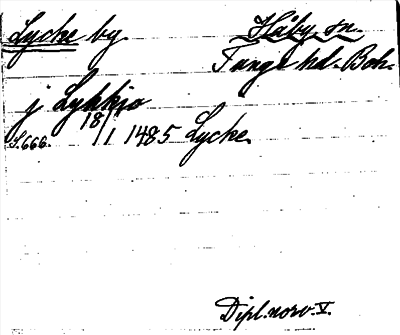 Lycke by.
Håby sn.
Tunge hd. Boh.
j Lykkjo
S.666. 18/1 1485 Lycke.
Dipl. norv. V.